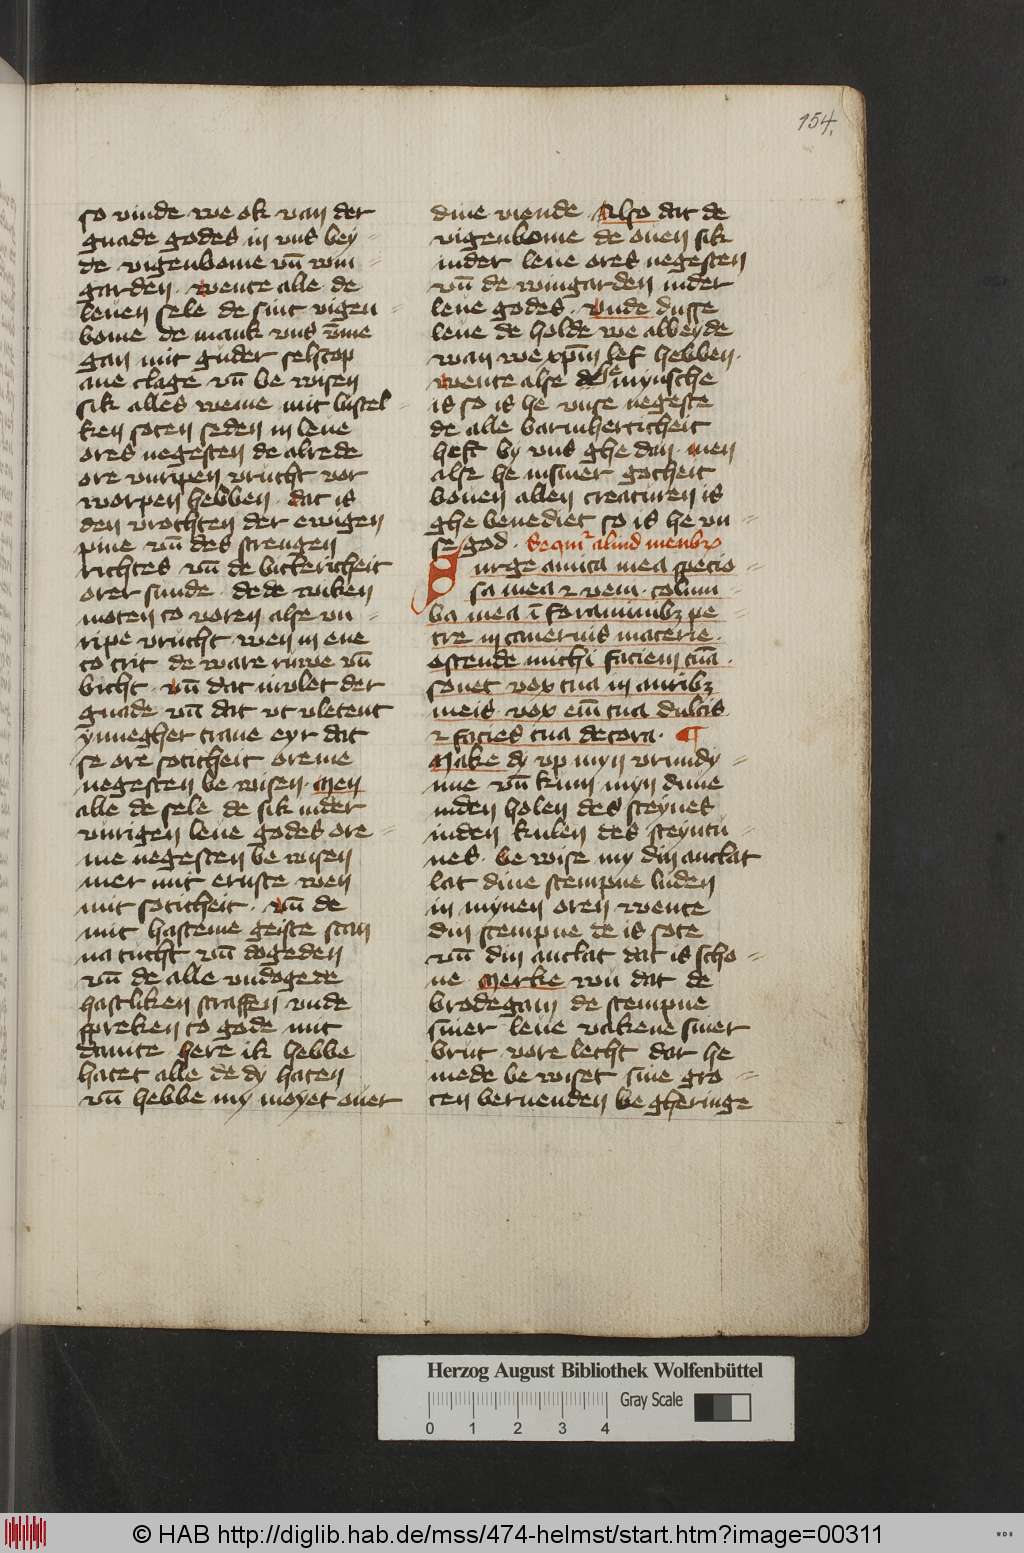 154.
so vinde we ok van der
gnade godes in vns bey-
de vigenbome vn̄ win-
garden. wente alle de
leuen sele de sint vigen-
bome de mank vns vm̄e
gan mit guder selscop
ane clage vn̄ be wisen
sik alles weme mit lustel-
ken soten seden in leue
ores negesten de alrede
ore vnripen vrucht vor
worpen hebben. dat is
den vrochten der ewigen
pine vn̄ des strengen
richtes vn̄ de bitkericheit
orer sunde. de de wiken
moten to voren alse vn-
ripe vrucht. wen in ene
to trit de ware ruwe vn̄
bicht. vn̄ dat invlet der
gnade vn̄ dat vt vletent
ynnegher traue eyr dat
se ore soticheit oreme
negesten be wisen. Men
alle de sele de sik inder
vurigen leue godes ore-
me negesten be wisen
mer mit ernste wen
mit soticheit. vn̄ de
mit hasteme geiste stan
na tucht vn̄ dogeden
vn̄ de alle vndogede
hastliken straffen vnde
spreken to gode mit
dauite here ik hebbe
hatet alle de dy haten
vn̄ hebbe my moyet ouer
dine viende. Also dat de
vigenbome de ouen sik
inder leue ores negesten
vn̄ de wingarden inder
leue godes. vnde dusse
leue de holde we albeyde
wan we xpm̄ lef hebben.
wente alse he mynsche
is so is he vnse negeste
de alle barmherticheit
heft by vns ghe dan. men
alse he in siner gotheit
bouen allen creaturen is
ghe benediet so is he vn-
se god. Sequit̉ aliud menbrū
Surge amica mea specio-
sa mea ⁊ veni. colum-
ba mea ī foraminibꝫ pe-
tre in cauernis macerie.
ostende michi faciem tuā.
sonet vox tua in auribꝫ
meis. vox em̄ tua dulcis
⁊ facies tua decora. ¶
Make dy vp myn vrundy-
nne vn̄ kum myn duue
inden holen des steynes
inden kulen des steyntu-
nes. be wise my din antlat
lat dine stempne luden
in mynen oren wente
din stempne de is sote
vn̄ din antlat dat is scho-
ne. Merke wu dat de
brodegam de stempne
siner leue vakene siner
brut vore lecht dar he
mede be wiset sine gro-
ten bernenden be gheringe
Herzog August Bibliothek Wolfenbüttel
Gray Scale
0 1 2 3 4
© HAB http://diglib.hab.de/mss/474-helmst/start.htm?image=00311
WDB